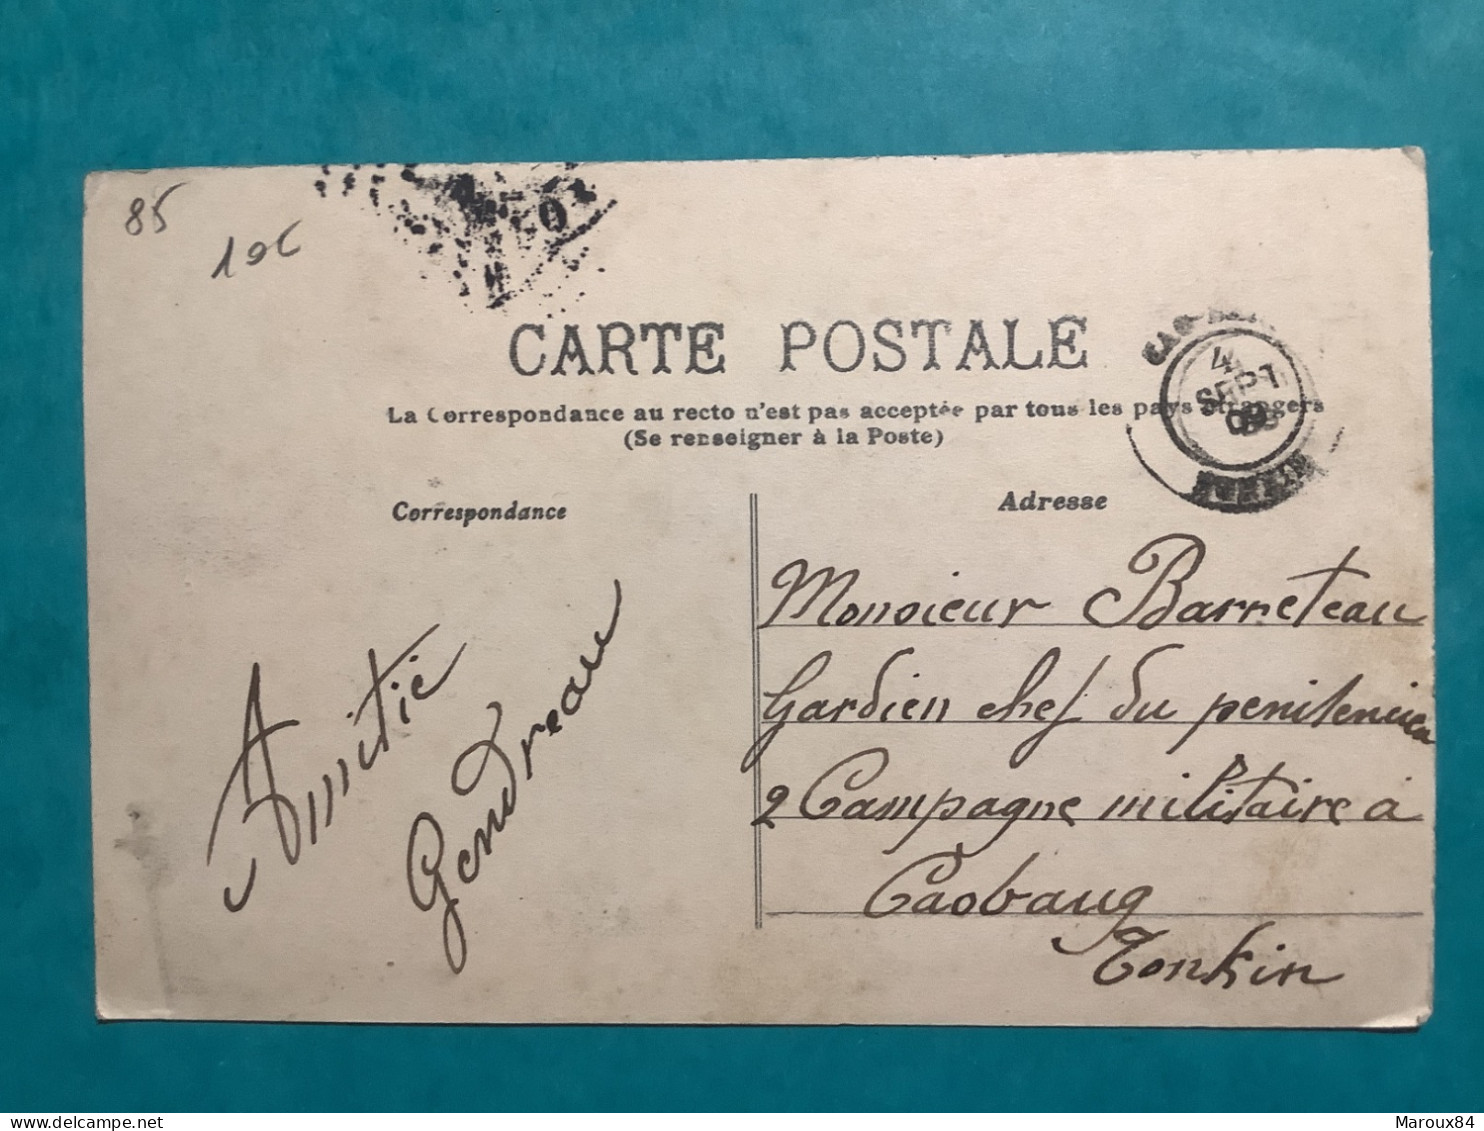 85
10€
CARTE POSTALE
La Correspondance au recto n'est pas acceptée par tous les pays étrangers
(Se renseigner à la Poste)
Correspondance
Adresse
4
SEPT
09
TONKIN
Amitié
Gendreau
Monsieur Barreteau
Gardien chef du penitencier
2 Campagne militaire à
Caobang
Tonkin
Maroux84